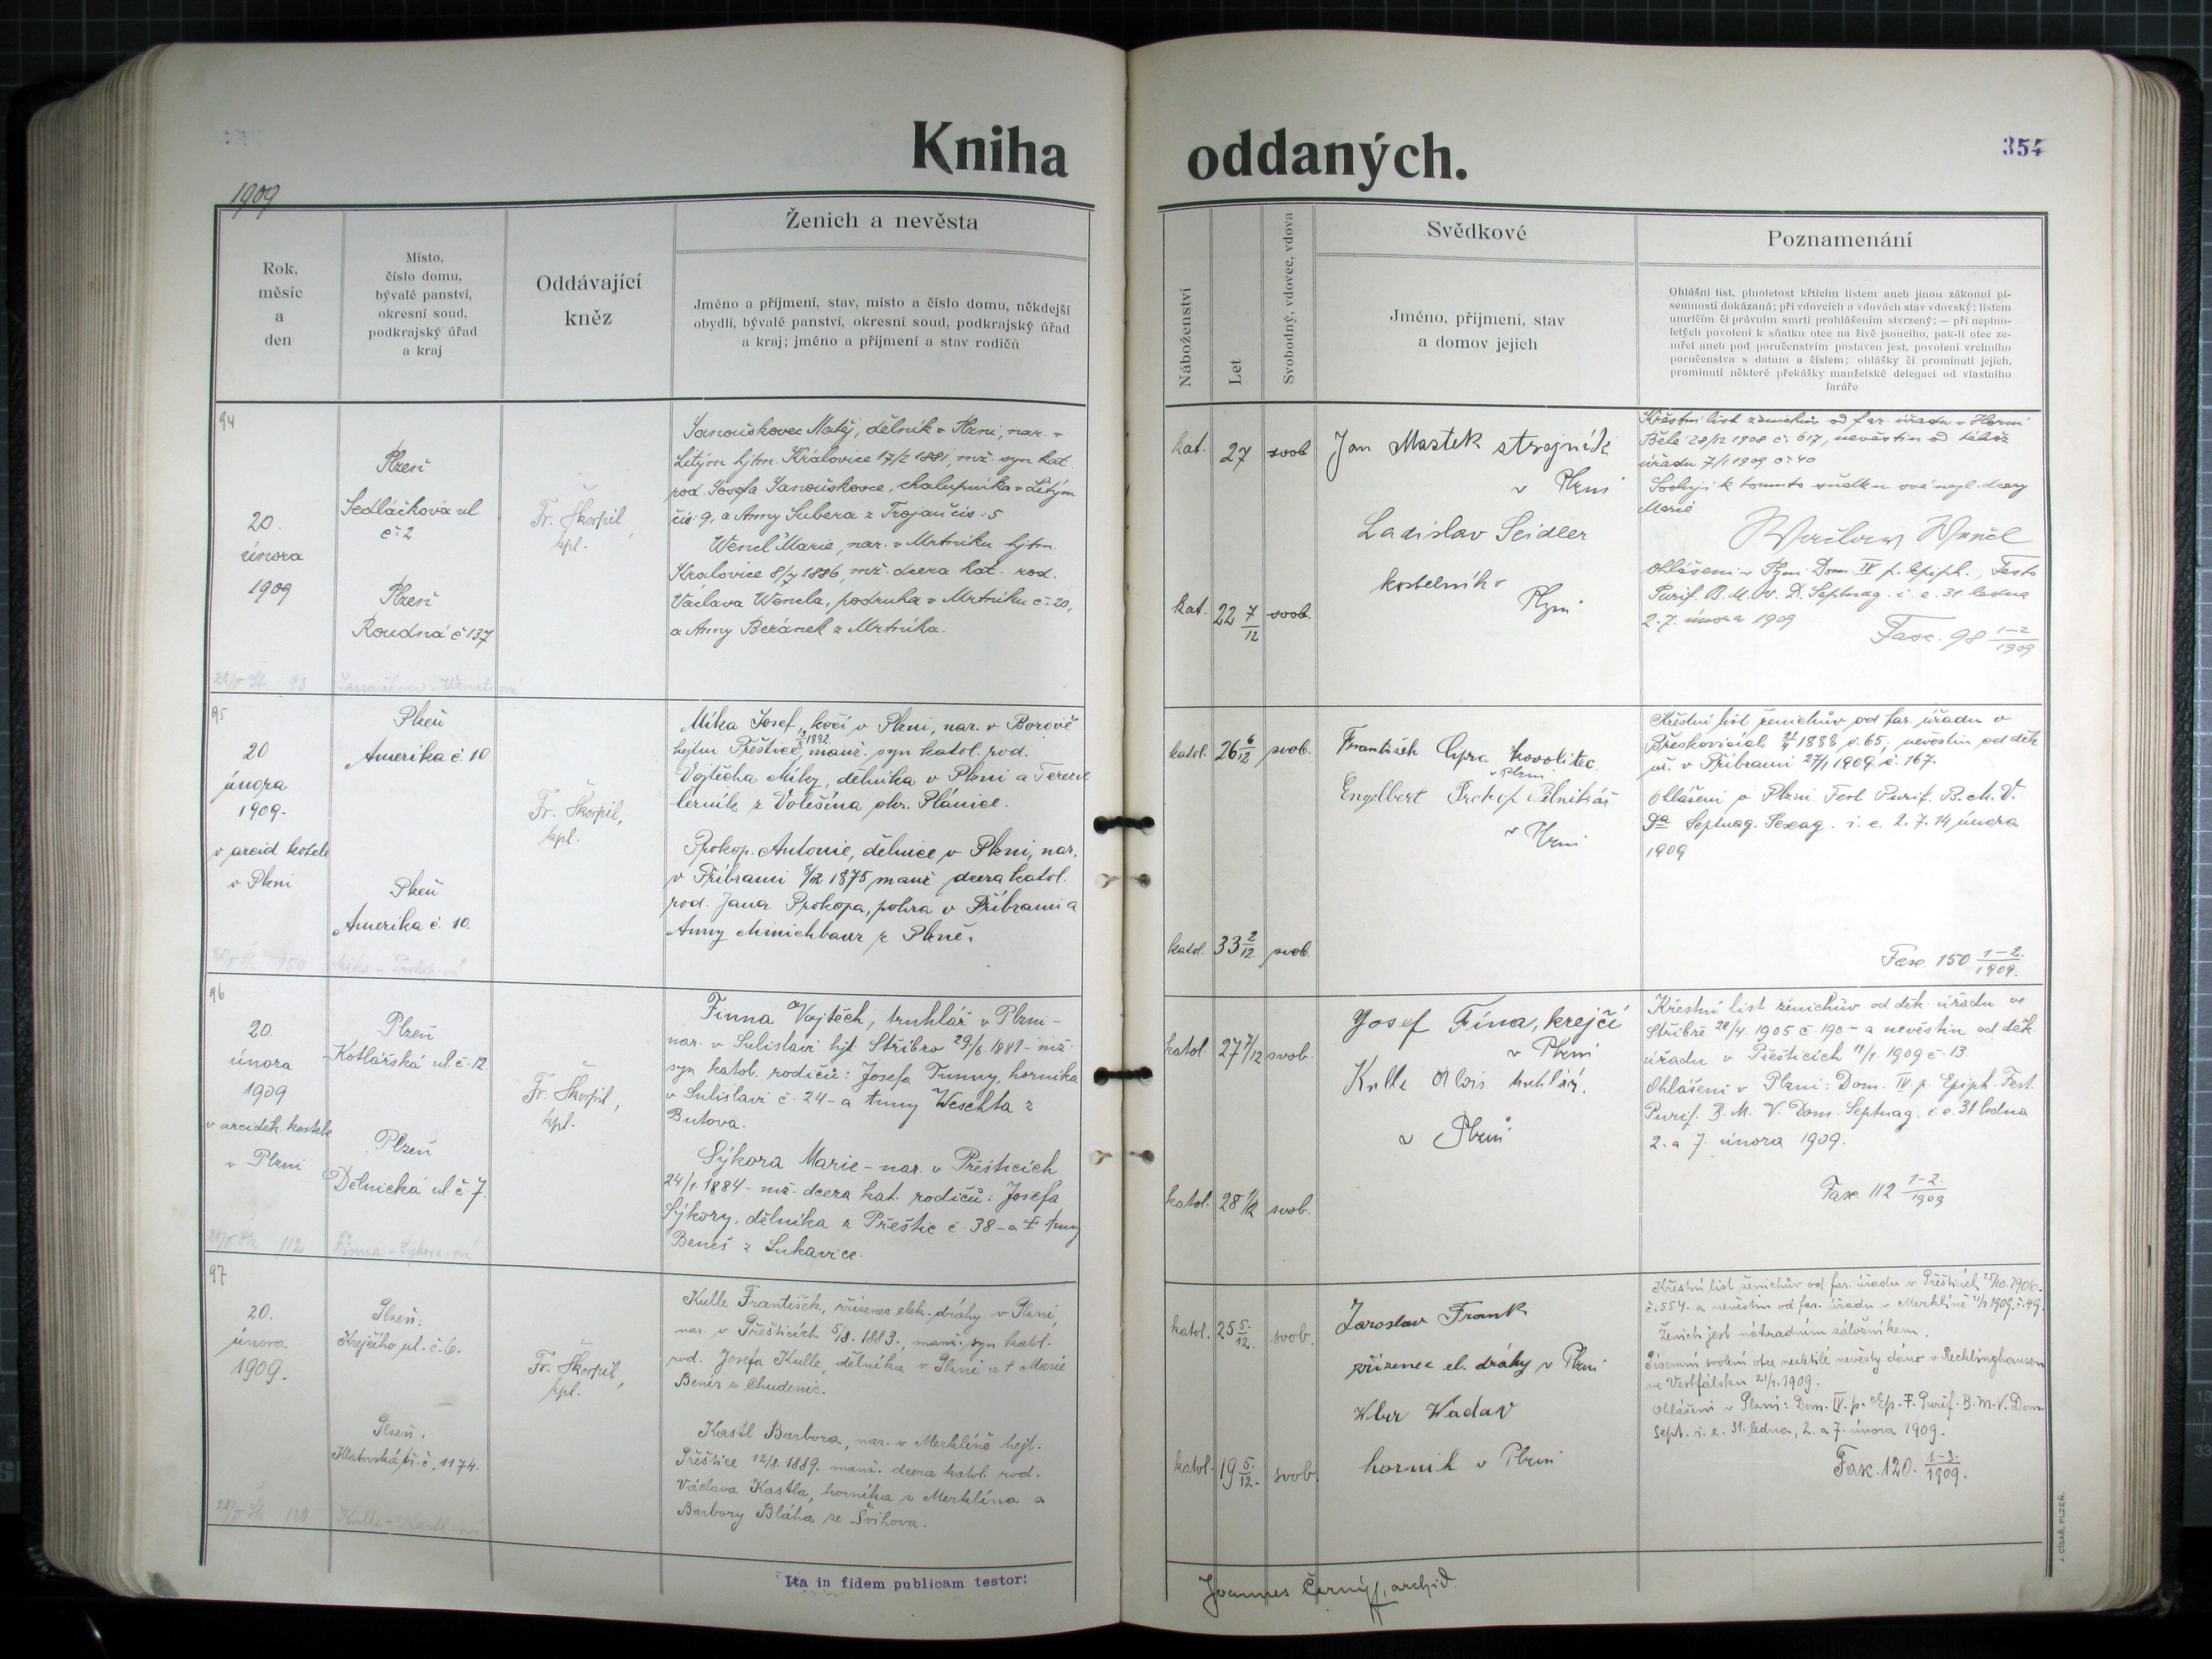 Kniha oddaných.
354
1909
Rok,
měsíc
a
den
Místo,
číslo domu,
bývalé panství,
okresní soud,
podkrajský úřad
a kraj
Oddávající
kněz
Ženich a nevěsta
Jméno a příjmení, stav, místo a číslo domu, někdejší
obydlí, bývalé panství, okresní soud, podkrajský úřad
a kraj; jméno a příjmení a stav rodičů
Náboženství
Let
Svobodný, vdovec, vdova
Svědkové
Jméno, příjmení, stav
a domov jejich
Poznamenání
Ohlášní list, plnoletost křticím listem aneb jinou zákonní pí-
semností dokázaná; při vdovcích a vdovách stav vdovský; listem
umrlčím či právním smrti prohlášením stvrzený; — při neplno-
letých povolení k sňatku otce na živě jsoucího, pak-li otec ze-
mřel aneb pod poručenstvím postaven jest, povolení vrchního
poručenstva s datum a číslem; ohlášky či prominutí jejich,
prominutí některé překážky manželské delegací od vlastního
faráře
94
20.
února
1909
Plzeň
Sedláčkova ul
č. 2
Plzeň
Roudná č 137
Fr. Škorpil,
kpl.
Janouškovec Matěj, dělník v Plzni, nar. v
Lítým hjtm. Kralovice 17/2 1881, mž. syn kat.
rod. Josefa Janouškovce, chalupníka v Lítým
čís. 9, a Anny Subera z Trojan čís. 5
Wencl Marie, nar. v Mrtníku hjtm.
Kralovice 8/7 1886, mž. dcera kat. rod.
Václava Wencla, podruha v Mrtníku č. 20,
a Anny Beránek z Mrtníka.
kat. 27 svob
kat. 22 7/12 svob.
Jan Mastek strojník
v Plzni
Ladislav Seidler
kostelník v
Plzni
Křestní list ženichův od far. úřadu v Horní
Bělé 28/12 1908 č. 617, nevěstin od téhož
úřadu 7/1 1909 č. 40
Svoluji k tomuto sňatku své nezl. dcery
Marie
Ohlášeni v Plzni Dom. IV p. Epiph., Festo
Purif. B. M. V. D. Septuag. i. e. 31 ledna
2. 7. února 1909
Fasc. 98 1–2/1909
95
20
února
1909.
v arcid kostele
v Plzni
Plzeň
Amerika č. 10
Plzeň
Amerika č. 10.
Fr. Škorpil,
kpl.
Míka Josef, kočí v Plzni, nar. v Borově
hejtm Přeštice, 1882 manž. syn katol. rod.
Vojtěcha Míky, dělníka v Plzni a Terezie
Černík z Volešína okr. Plánice.
Prokop Antonie, dělnice v Plzni, nar.
v Příbrami 1875 manž dcera katol.
rod. Jana Prokopa, v Příbrami a
Anny z Plzně.
katol. 26 6/12 svob.
katol. 33 2/12 svob.
František Cypra kovolitec
v Plzni
Engelbert Prokop Pilnikář
v Plzni
Křestní list ženichův od far. úřadu v
Břeskovicích 1888 č. 65; nevěstin od děk
úř. v Příbrami 27/1 1909 č. 167.
Ohlášeni v Plzni Fest Purif. B. M. V.
Septuag. Sexag. i. e. 2. 7. 14 února
1909
Fasc. 150 1–2./1909.
96
20.
února
1909
v arciděk. kostele
v Plzni
Plzeň
Kotlářská ul. č. 12.
Plzeň
Dělnická ul. č 7.
Fr. Škorpil,
kpl.
Finna Vojtěch, truhlář v Plzni –
nar. v Sulislavi hjt. Stříbro 29/6. 1881 – mž.
syn katol. rodičů: Josefa Finny, horníka
v Sulislavi č. 24 – a Anny Weschta z
Butova.
Sýkora Marie – nar. v Přešticích
24/1. 1884 – mž. dcera kat. rodičů: Josefa
Sýkory, dělníka z Přeštic č. 38 – a † Anny
Beneš z Lukavice.
katol. 27 7/12 svob.
katol. 28 1/12 svob.
Josef Fina, krejčí
v Plzni
Kulle Alois truhlář.
v Plzni
Křestní list ženichův od děk. úřadu ve
Stříbře 28/4. 1905 č 190 – a nevěstin od děk.
úřadu v Přešticích 11/1. 1909 č. 13.
Ohlášeni v Plzni: Dom. IV. p. Epiph. Fest.
Purif. B. M. V. Dom. Septuag. i. e. 31 ledna
2. a 7. února 1909.
Fasc. 112 1–2./1909
97
20.
února
1909.
Plzeň:
Krejčího ul. č. 6.
Plzeň.
Klatovská tř. č. 1174.
Fr. Škorpil,
kpl.
Kulle František, zřízenec elek. dráhy v Plzni,
nar. v Přešticích 5/8. 1883., manž. syn katol.
rod. Josefa Kulle, dělníka v Plzni a † Marie
Beníz z Chudenic.
Kastl Barbora, nar. v Merklíně hejt.
Přeštice 12/8. 1889. manž. dcera katol. rod.
Václava Kastla, horníka z Merklína a
Barbory Bláha ze Švihova.
katol. 25 5./12. svob.
katol. 19 5./12. svob.
Jaroslav Frank
zřízenec el. dráhy v Plzni
horník v Plzni
Křestní list ženichův od far. úřadu v Přešticích 25/10. 1906.
č. 554. a nevěstin od far. úřadu v Merklíně 1909. č. 49.
Ženich jest náhradním záložníkem.
Písemní svolení otce nezletilé nevěsty dáno v Recklinghausen
ve Vestfálsku 21/1. 1909.
Ohlášeni v Plzni: Dom. IV. p. Ep. F. Purif. B. M. V. Dom.
Sept. i. e. 31. ledna, 2. a 7. února 1909.
Fasc. 120. 1–3./1909.
Ita in fidem publicam testor:
Joannes Černý, archid.
J. CÍSAŘ, PLZEŇ.